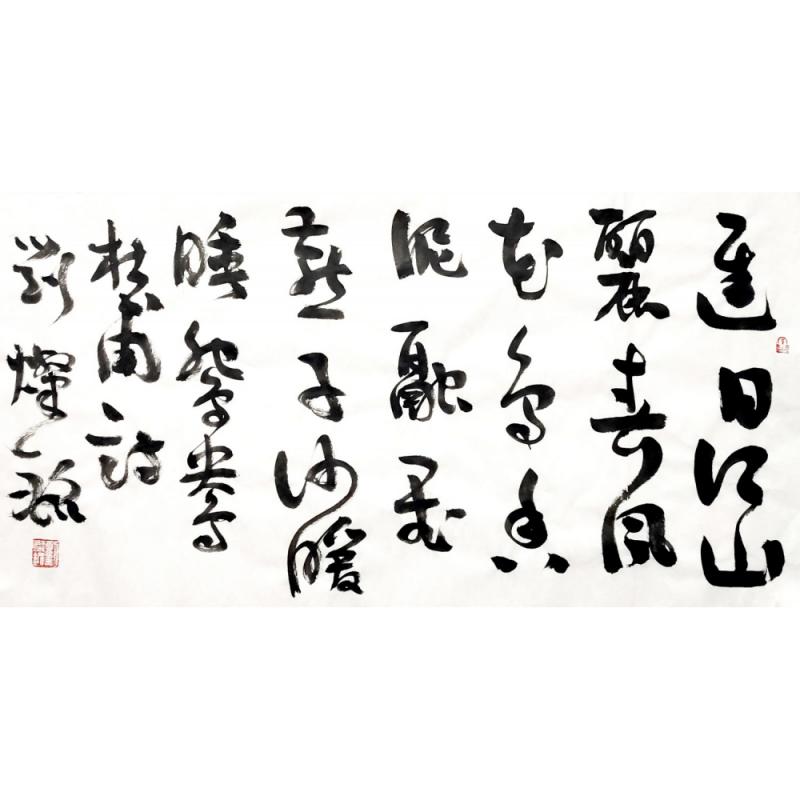 遲日江山
麗春風
花鳥香
泥融飛
燕子沙暖
睡鴛鴦
杜甫詩
劉燦銘